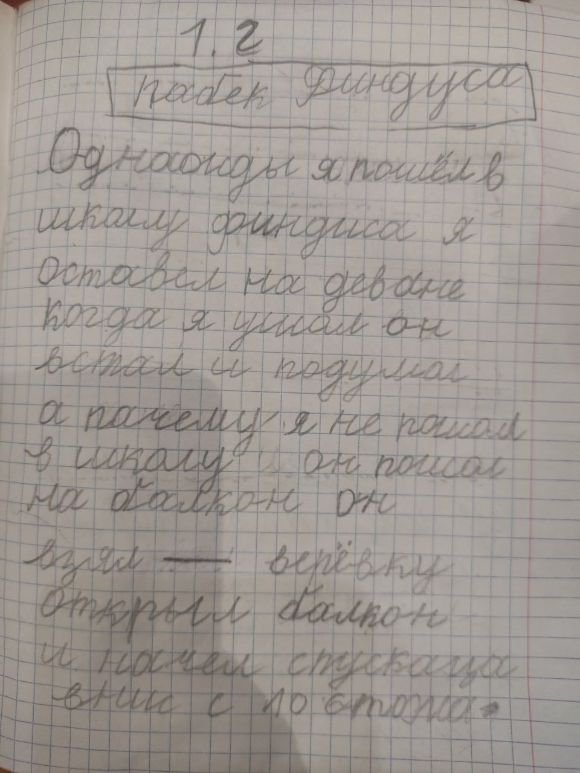 1.2
пабек Финдуса
Однаонды я пошёл в
школу финдиса я
оставел на деване
когда я ушол он
встал и подумал
а пачему я не пошол
в школу он пошол
на балкон он
взял верёвку
открыл балкон
и начел спускаца
вниc с 10 этожа.